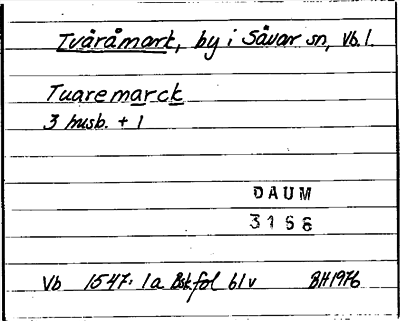 Tväråmark, by i Sävar sn, Vb.l.
Tuaremarck
3 husb. + 1
DAUM
3166
Vb 1547: 1a Bskfol 61v BH1976